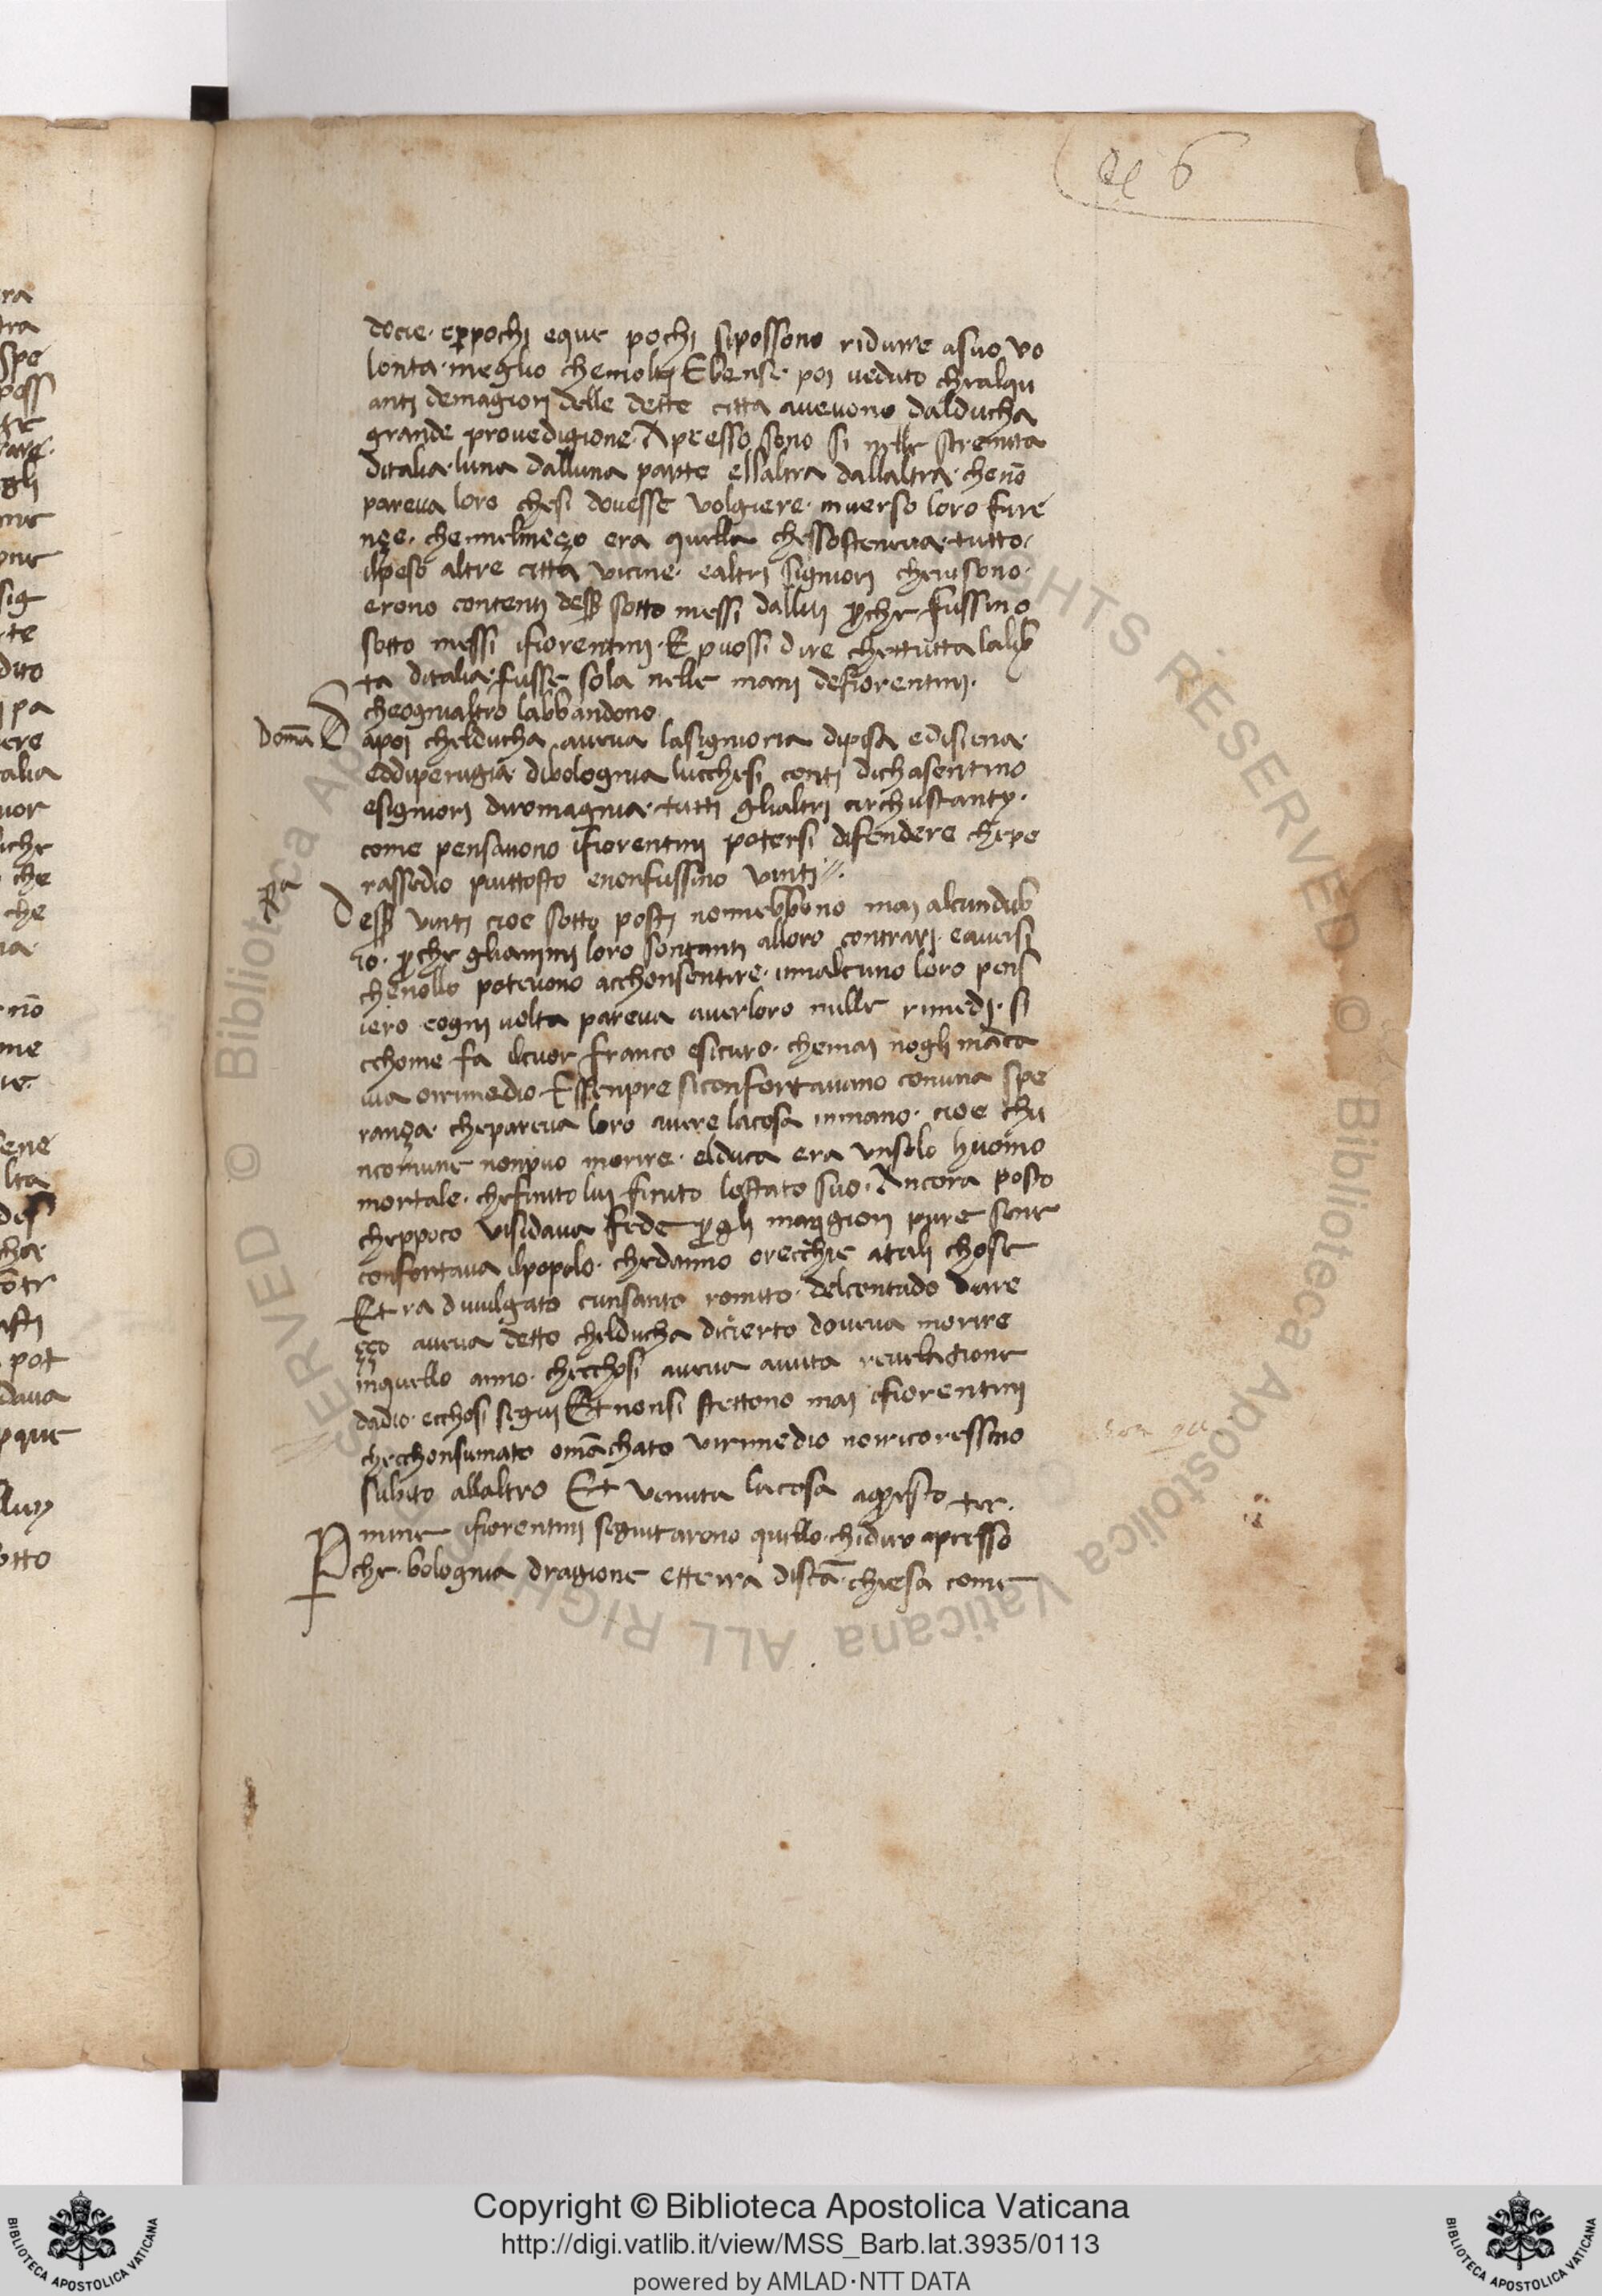 de 6
docie. epochi eque pochi sipossono ridurre asuo vo
lonta. meglio chemolti Ebense. poi veduto chealqu
anti demagiori delle dette citta avevono dalducha
grande provedigione. Apresso sono si nelle stremita
ditalia. luna dalluna parte ellaltra dallaltra. chenō
pareva loro chesi dovesse volgiere. inverso loro fure
nçe. chennelmeço era quella chessosteneva tutto
ilpeso altre citta vicine. ealtri signiori chevisono.
erono contenti desser sotto messi dallui perche fussino
sotto messi ifiorentini. E puossi dire chettutta laliber
ta ditalia. fusse sola nelle mani defiorentini.
cheognialtro labbandono.
Domā D apoi chelducha aveva lasignioria dipisa edisiena.
eddiperugia. dibolognia lucchesi conti dichasentino
esigniori diromagnia. tutti glialtri circhustanty.
come pensavono ifiorentini potersi difendere chepe
rassedio piuttosto enonfussino vinti
Ra D esser vinti cioe sotto posti nonnebbono mai alcundub
io. perche glianimi loro sontanti alloro contrari. eaversi
chenollo potevono acchonsentire. innalcuno loro pens
iero. eogni volta pareva averloro mille rimedi. si
cchome fa ilcuor franco esicuro. chemai nogli māca
va oirimedio Essenpre siconfortavano conuna spe
rança. chepareva loro avere lacosa inmano. cioe chu
ncomune nonpuo morire. elduca era unsolo huomo
mortale. chefinito lui finito lostato suo. Ancora posto
cheppoco visidava fede pergli maggiori pure sene
confortava ilpopolo. chedanno orecchie atali chose
Et ra divulgato cunsanto romito. delcontado dare
ço aveva detto chelducha dicierto doveva morire
inquello anno. checchosi aveva avuta revelagione
dadio. ecchosi segui Et nonsi stettono mai ifiorentini
checchonsumato omāchato unrimedio nonricoressino
subito allaltro Et venuta lacosa aquesto ter.
mine ifiorentini seguitarono quello. chidiro apresso
Pche. bologna dragione etterra discā. chiesa come
Copyright © Biblioteca Apostolica Vaticana
http://digi.vatlib.it/view/MSS_Barb.lat.3935/0113
powered by AMLAD·NTT DATA